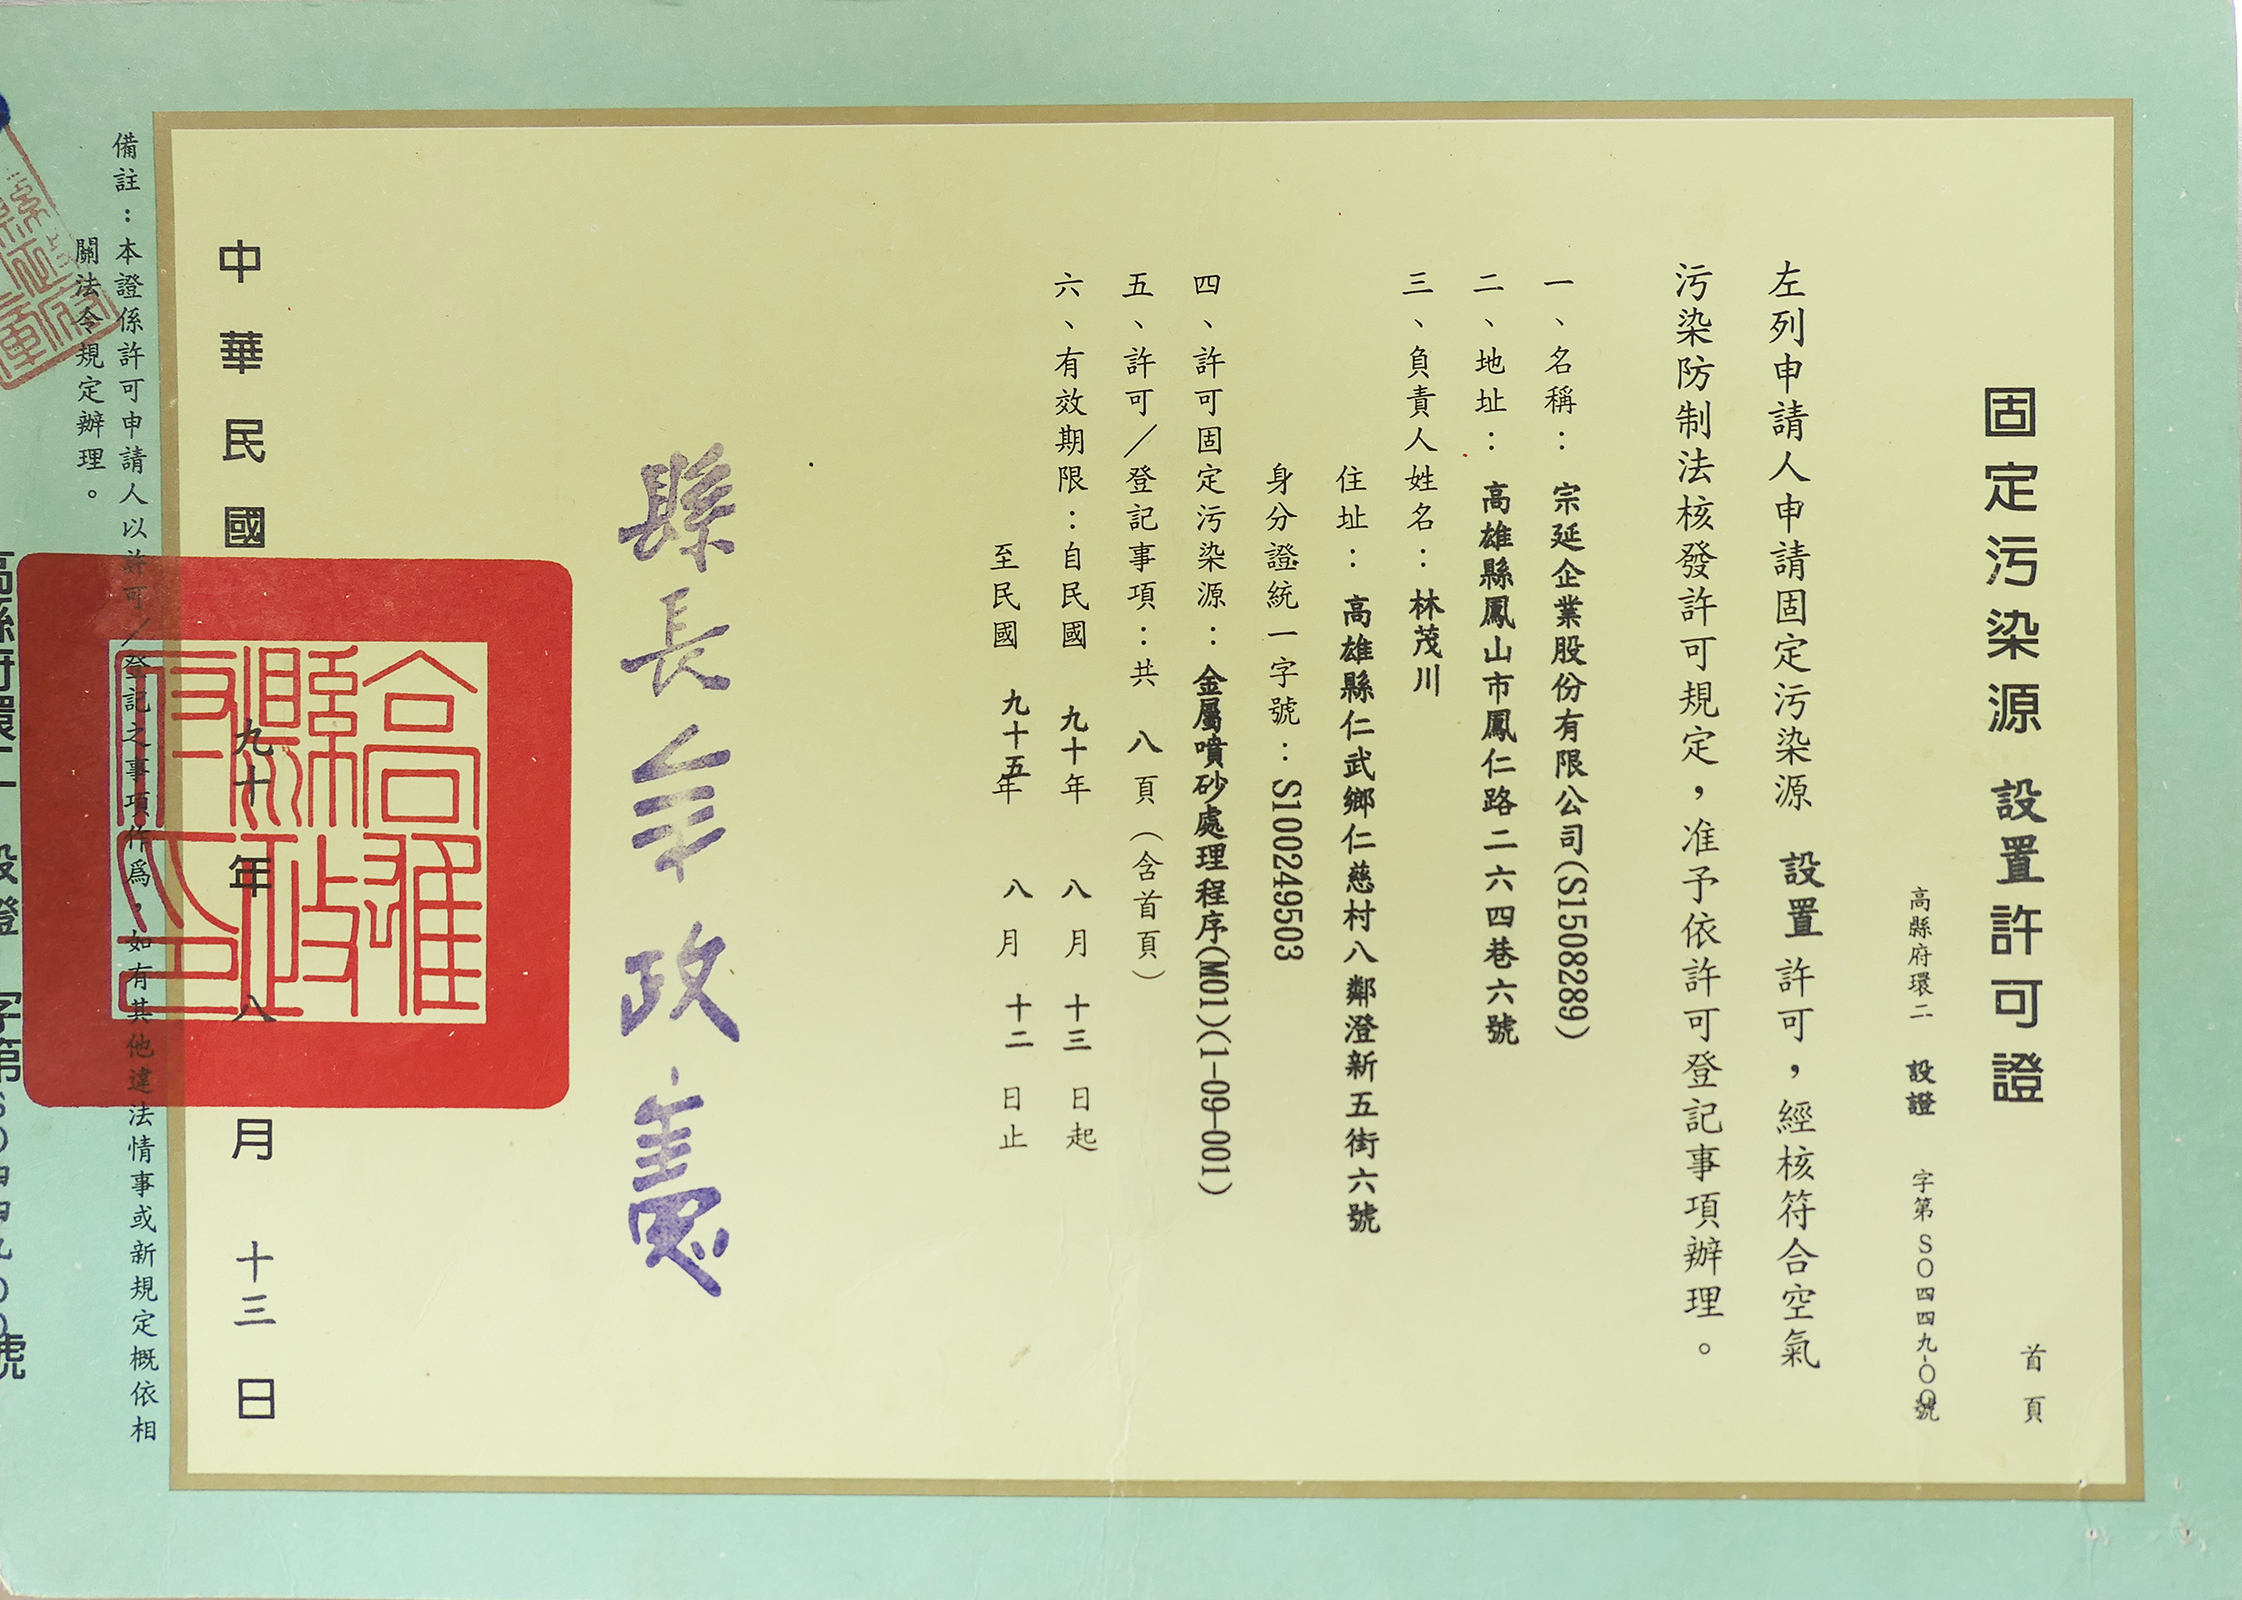 首頁
固定污染源 設置許可證
高縣府環二 設證 字第 SO四四九-OO號
左列申請人申請固定污染源 設置 許可，經核符合空氣
污染防制法核發許可規定，准予依許可登記事項辦理。
一、名稱：宗延企業股份有限公司(S1508289)
二、地址：高雄縣鳳山市鳳仁路二六四巷六號
三、負責人姓名：林茂川
住址：高雄縣仁武鄉仁慈村八鄰澄新五街六號
身分證統一字號：S100249503
四、許可固定污染源：金屬噴砂處理程序(M01)(1-09-001)
五、許可／登記事項：共 八 頁（含首頁）
六、有效期限：自民國 九十年 八 月 十三 日起
至民國 九十五年 八 月 十二 日止
縣長余政憲
高雄縣政府印
中華民國 九十 年 八 月 十三 日
備註：本證係許可申請人以許可／登記之事項作為，如有其他違法情事或新規定概依相
關法令規定辦理。